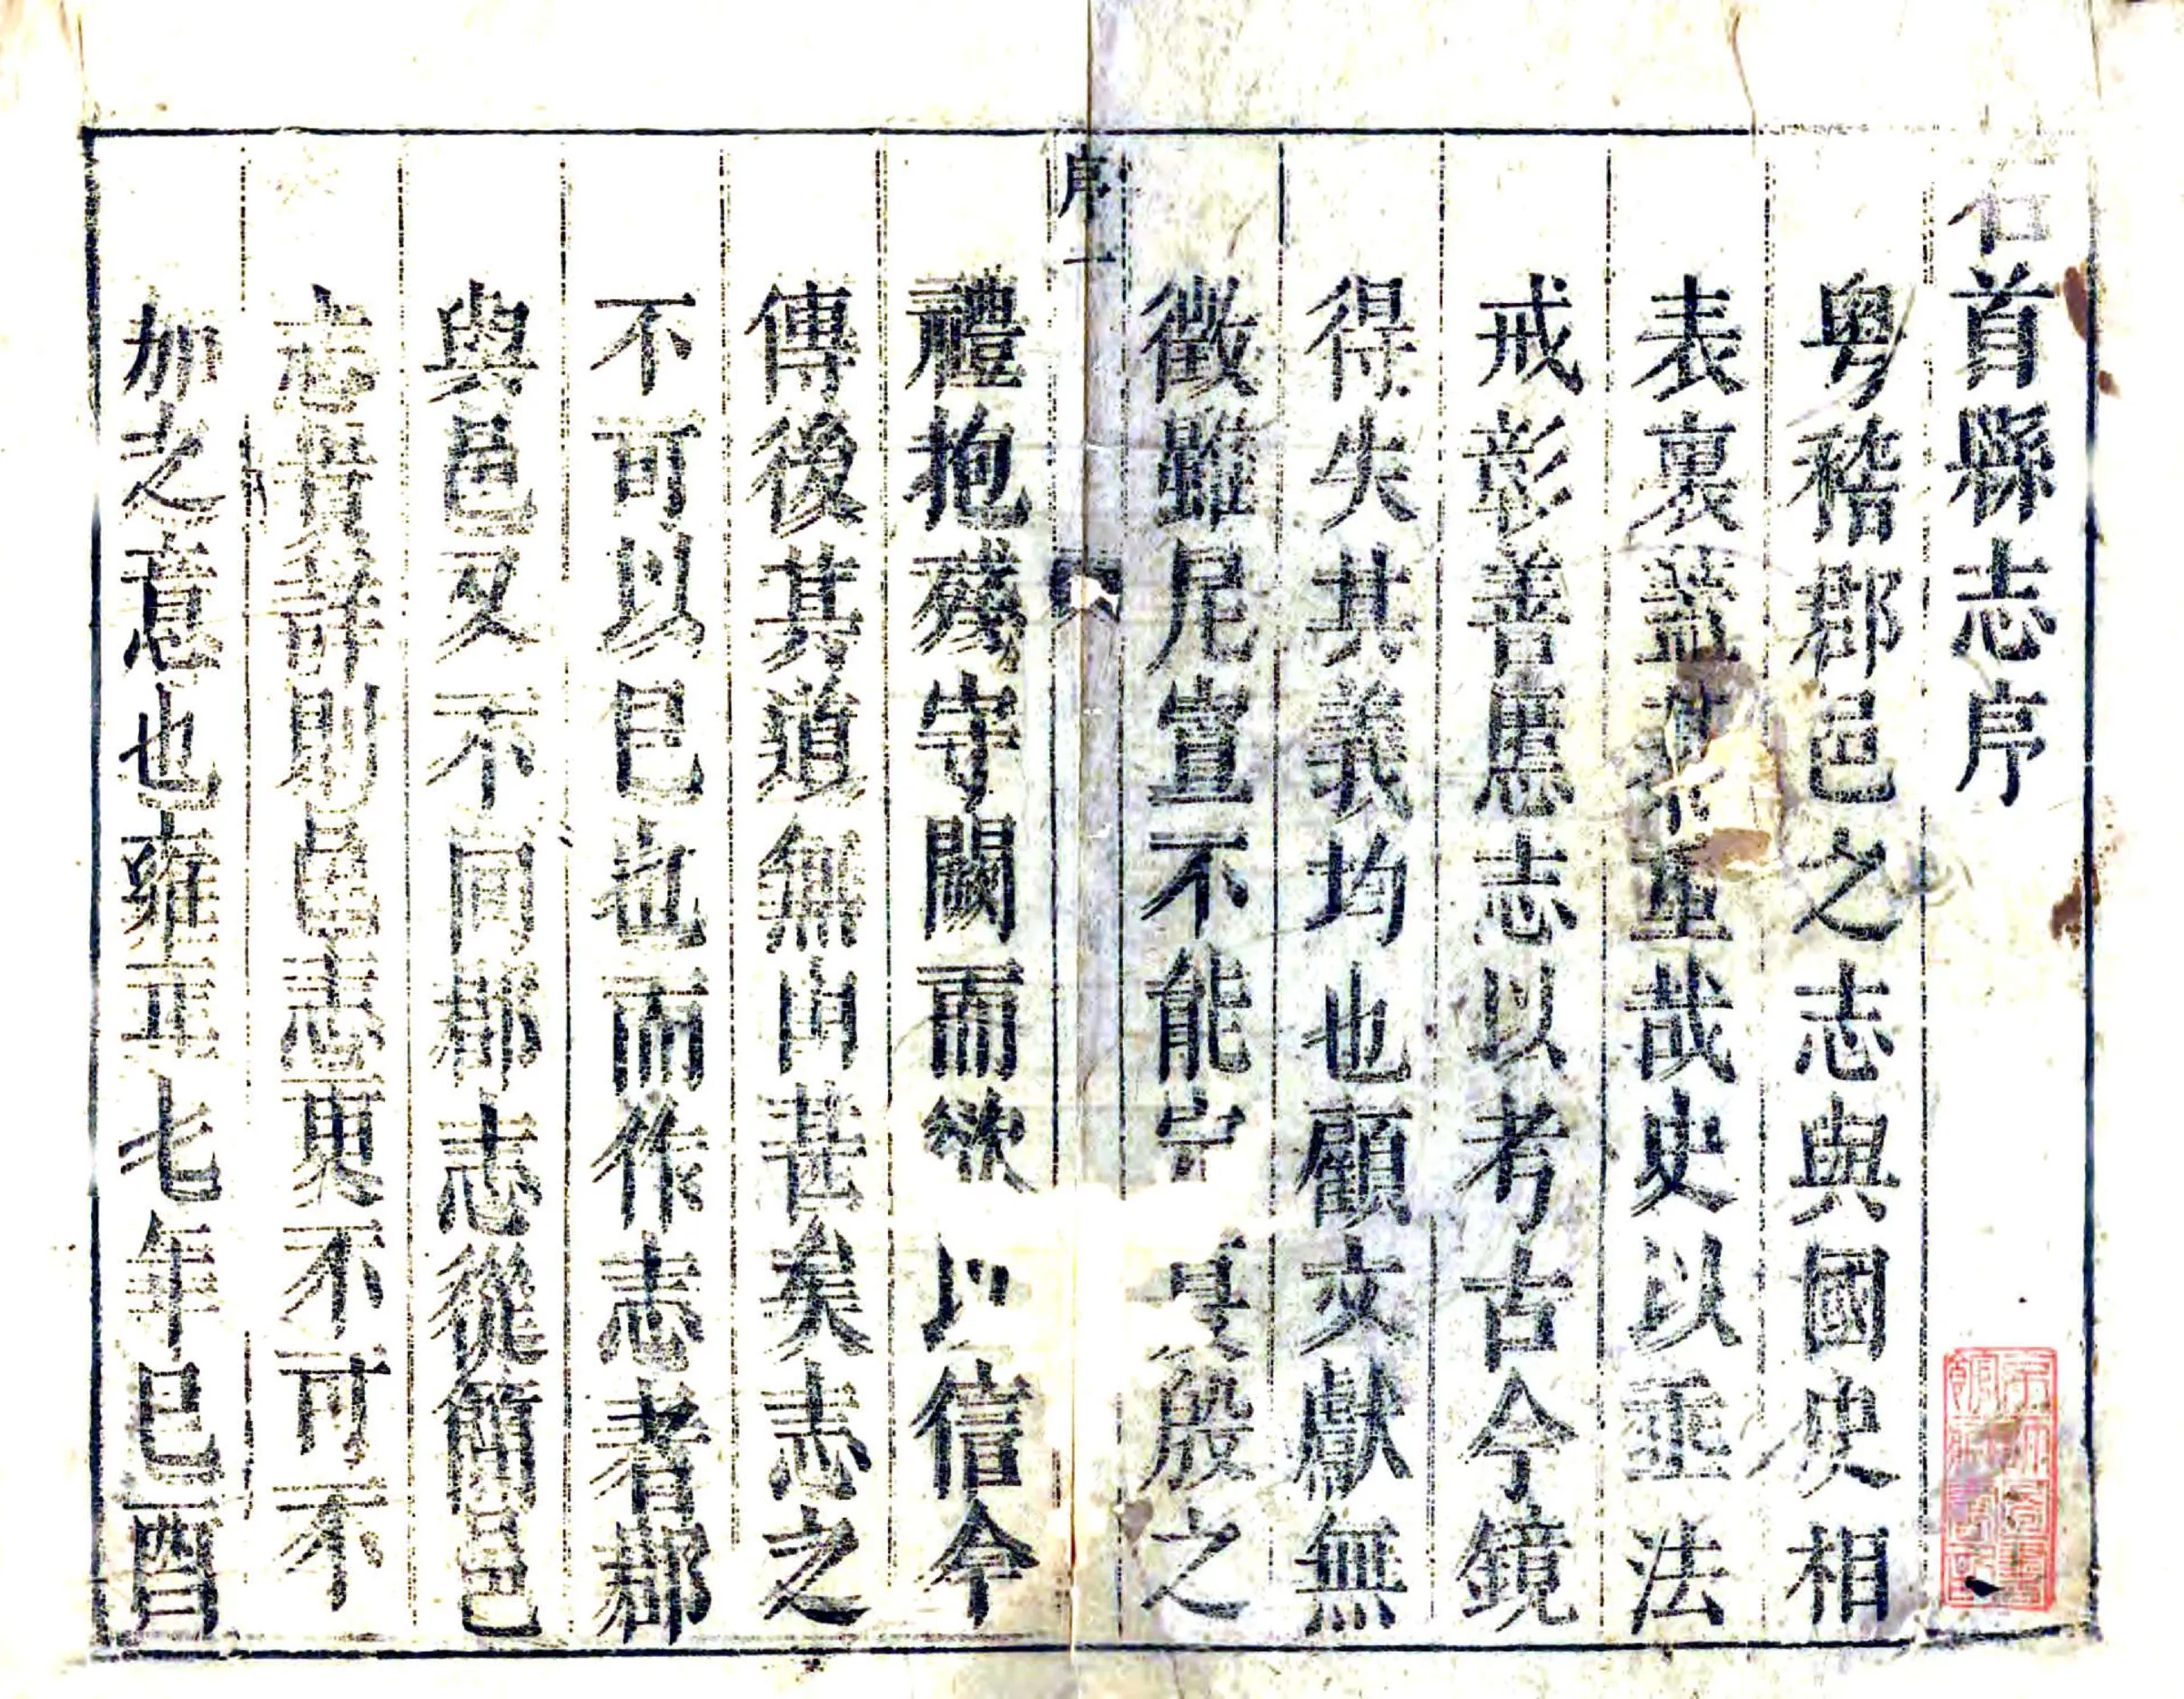 石首縣志序
粵稽郡邑之志與國史相
表裏蓋綦重哉史以垂法
戒彰善惡志以考古今鏡
得失其義均也顧文獻無
徵雖尼宣不能定夏殷之
序 一
禮抱殘守闕而欲以信今
傳後其道無由甚矣志之
不可以已也而作志者郡
與邑又不同郡志從簡邑
志貴詳則邑志更不可不
加之意也雍正七年己酉